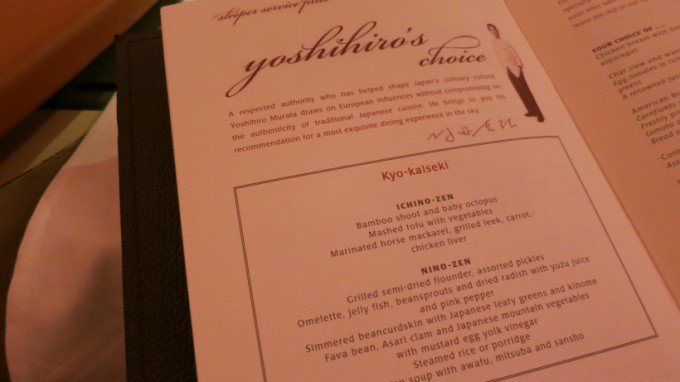 sleeper service plus
yoshihiro's
choice
A respected authority who has helped shape Japan's culinary culture,
Yoshihiro Murata draws on European influences without compromising on
the authenticity of traditional Japanese cuisine. He brings to you his
recommendation for a most exquisite dining experience in the sky.
Kyo-kaiseki
ICHINO-ZEN
Bamboo shoot and baby octopus
Mashed tofu with vegetables
Marinated horse mackarel, grilled leek, carrot,
chicken liver
NINO-ZEN
Grilled semi-dried flounder, assorted pickles
Omelette, jelly fish, beansprouts and dried radish with yuzu juice
and pink pepper
Simmered beancurdskin with Japanese leafy greens and kinome
Fava bean, Asari clam and Japanese mountain vegetables
with mustard egg yolk vinegar
Steamed rice or porridge
soup with awafu, mitsuba and sansho
YOUR CHOICE OF
Chicken breast with
asparagus
Char siew and
Egg noodles in
greens
A renowned
American
Cornflakes
Freshly
tomato
Bread